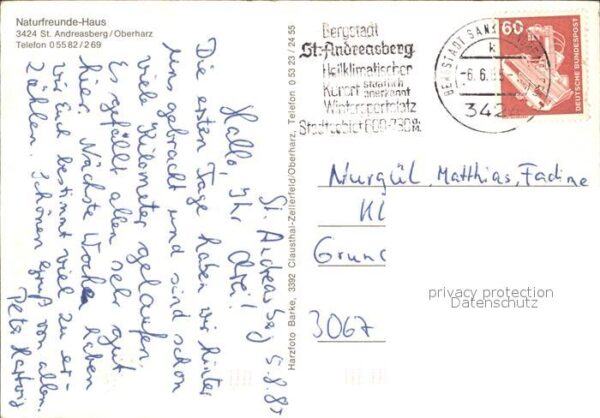 Naturfreunde-Haus
3424 St. Andreasberg/Oberharz
Telefon 0 55 82 / 2 69
St. Andreasberg 5.8.85
Hallo, Ihr drei!
Die ersten Tage haben wir hinter
uns gebracht und sind schon
viele Kilometer gelaufen.
Es gefällt allen sehr gut
hier. Nächste Woche haben
wir Euch bestimmt viel zu er-
zählen. Schönen Gruß von allen
Peter Hartwig
Harzfoto Barke, 3392 Clausthal-Zellerfeld/Oberharz, Telefon 0 53 23 / 24 55
Bergstadt
St. Andreasberg
Heilklimatischer
Kurort staatlich
anerkannt
Wintersportplatz
Stadtgebiet 600-
BERGSTADT SANKT
-6.8.85
3424
60
DEUTSCHE BUNDESPOST
Nurgül, Matthias, Fadine
Kl
Grund
3067
privacy protection
Datenschutz